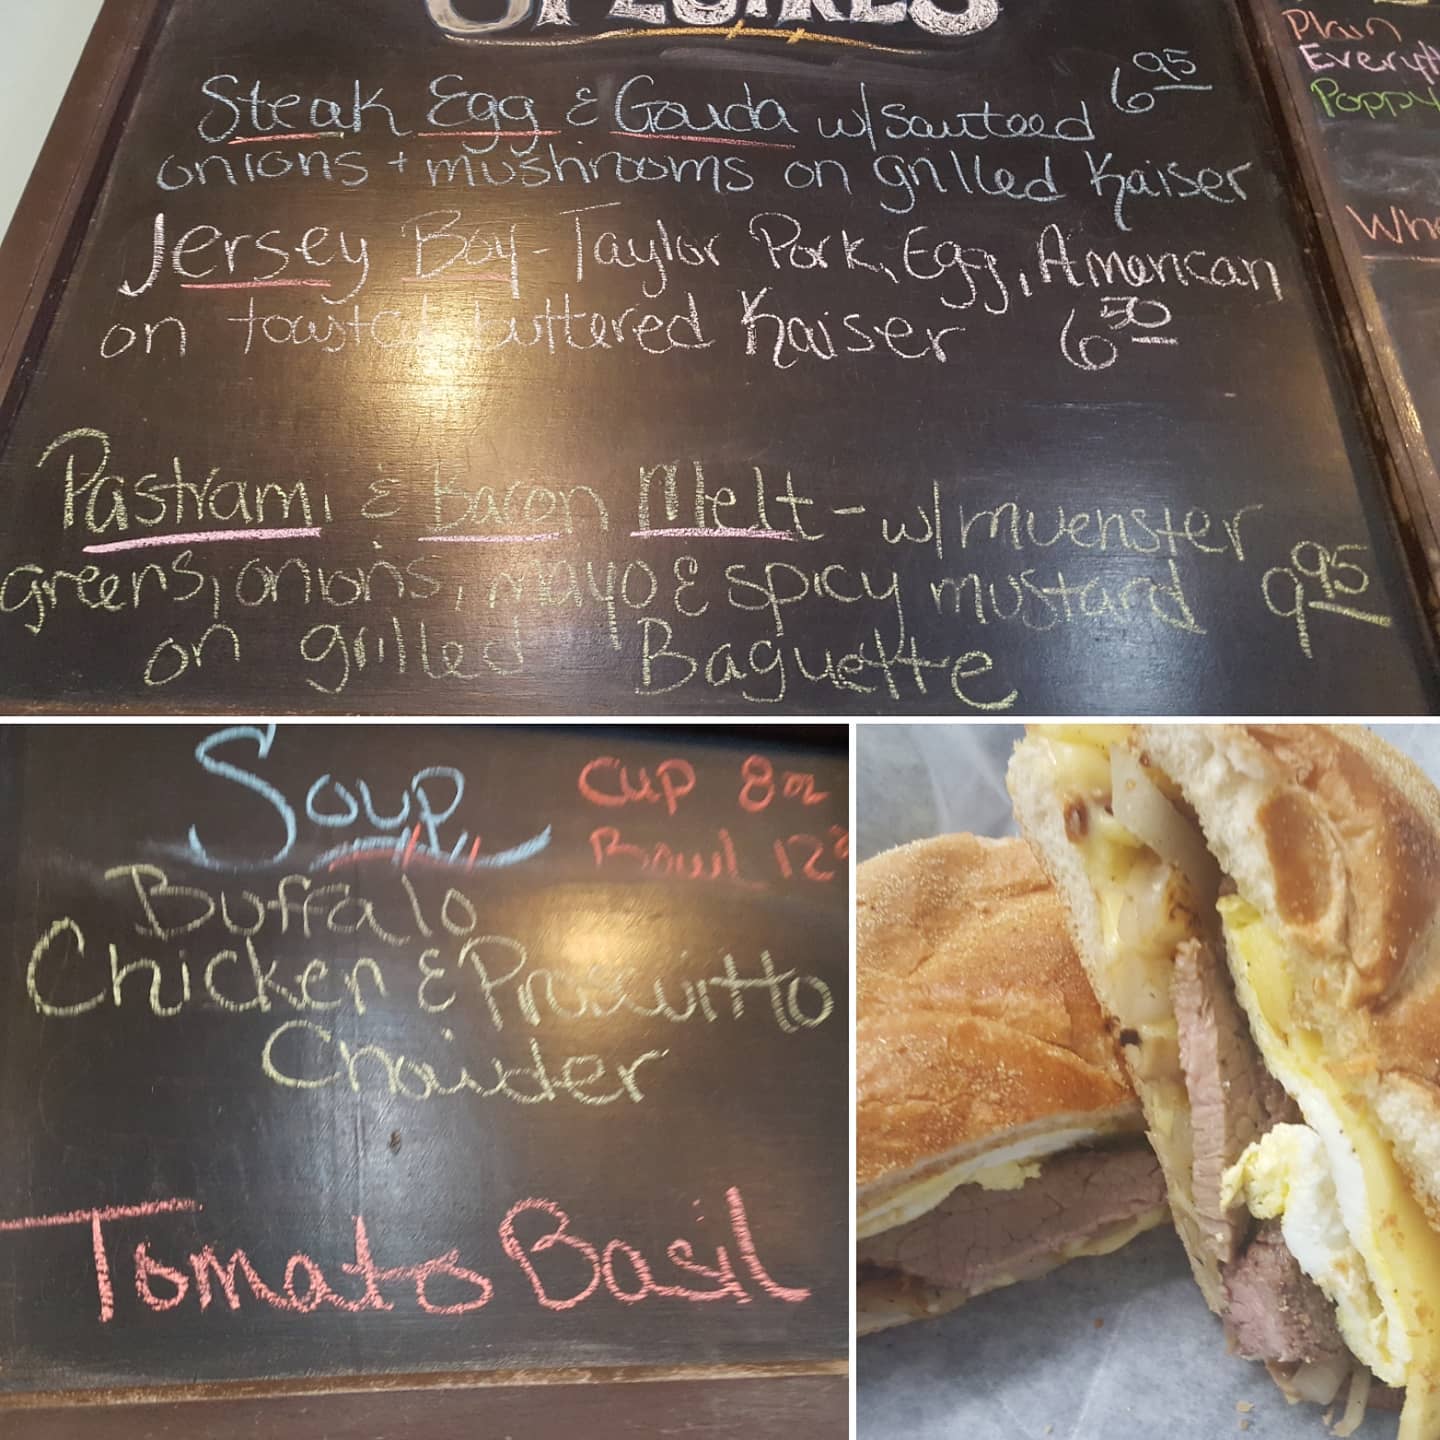 SPECIALS
Steak Egg & Gouda w/sauteed 6.95
onions + mushrooms on grilled Kaiser
Jersey Boy - Taylor Pork, Egg, American
on toasted buttered Kaiser 6.50
Pastrami & Bacon Melt - w/muenster
greens, onions, mayo & spicy mustard 9.95
on grilled Baguette
Plain
Poppy
Soup
Cup 8oz
Bowl 12
Buffalo
Chicken & Prosciutto
Chowder
Tomato Basil